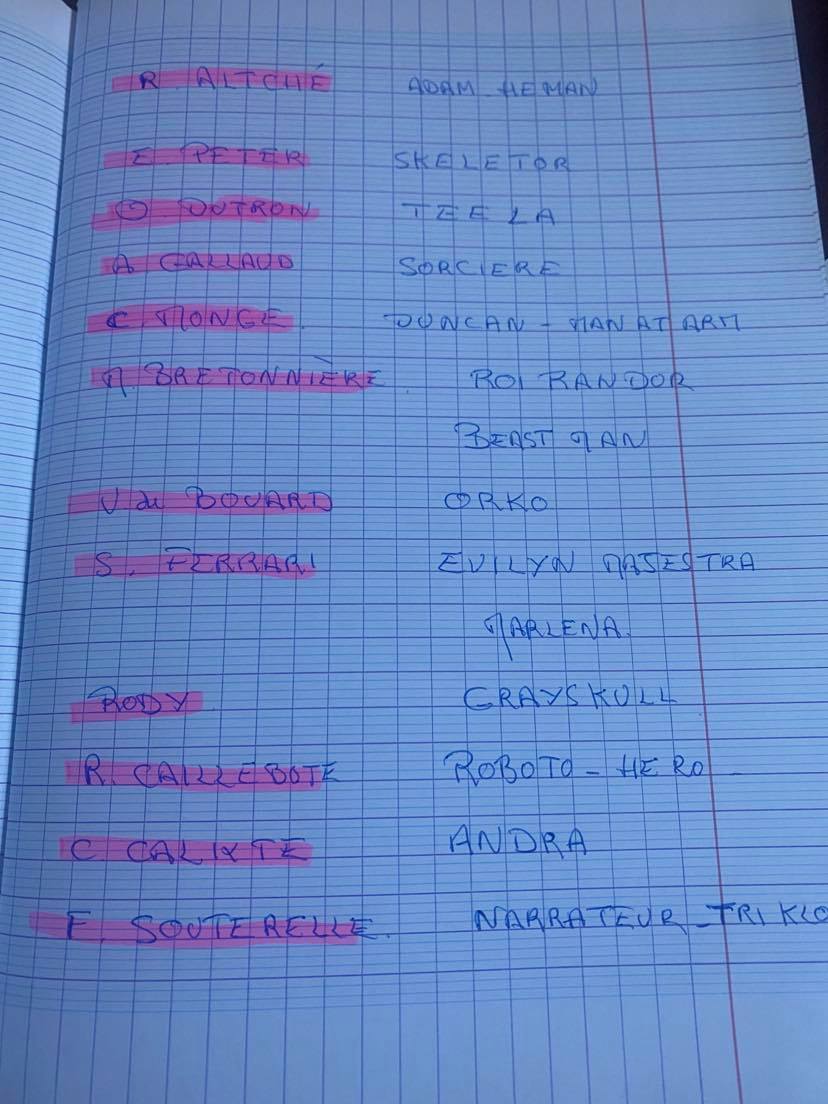 R. ALTCHÉ ADAM_HEMAN
E. PETER SKELETOR
O DUTRON TEELA
A GALLAUD SORCIERE
C. MONGE. DUNCAN - MAN AT ARM
M. BRETONNIÈRE. ROI RANDOR
BEAST MAN
V du BOUARD ORKO
S. FERRARI EVILYN
MARLENA.
RODY GRAYSKULL
R. CAILLEBOTE ROBOTO - HERO -
C CALIXTE ANDRA
F. SOUTERELLE. NARRATEUR_TRIKLO